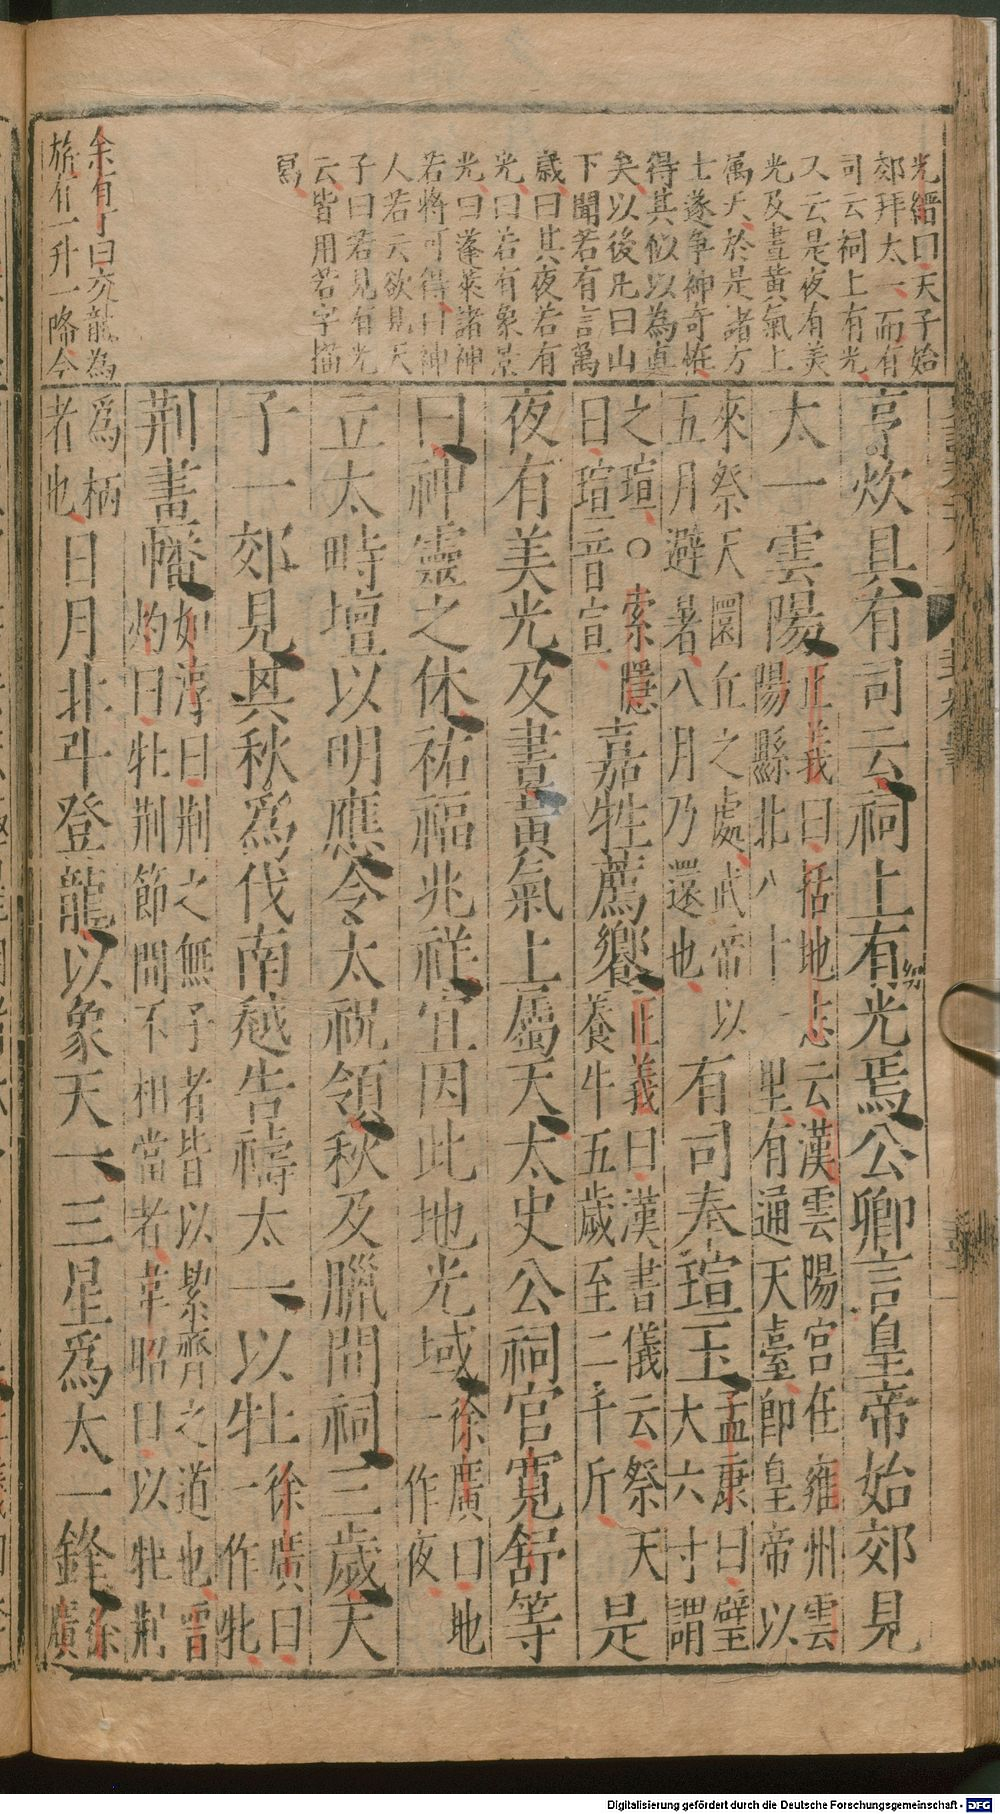 光縉曰天子始
郊拜太一而有
司云祠上有光
又云是夜有美
光及晝黃氣上
屬天於是諸方
士遂爭神奇恠
得其似以為眞
矣以後凡曰山
下聞若有言萬
歲曰其夜若有
光曰若有象景
光曰蓬萊諸神
若將可得曰神
人若云欲見天
子曰若見有光
云皆用若字描
寫
余有丁曰交龍為
旂有一升一降今
亨炊具有司云祠上有光焉公卿言皇帝始郊見
太一雲陽
正義曰括地志云漢雲陽宮在雍州雲
陽縣北八十一里有通天臺即皇帝以
來祭天圜丘之處武帝以
五月避暑八月乃還也
有司奉瑄玉
孟康曰璧
大六寸謂
之瑄○索隱
曰瑄音宣
嘉牲薦饗
正義曰漢書儀云祭天
養牛五歲至二千斤
是
夜有美光及晝黃氣上屬天太史公祠官寬舒等
曰神靈之休祐福兆祥宜因此地光域
徐廣曰地
一作夜
立太畤壇以明應令太祝領秋及臘間祠三歲天
子一郊見其秋為伐南越告禱太一以牡
徐廣曰
一作牝
荆畫幡
如淳曰荆之無子者皆以絜齊之道也晉
灼曰牡荆節間不相當者韋昭曰以牝荆
爲柄
者也
日月北斗登龍以象天一三星爲太一鋒
徐
廣
Digitalisierung gefördert durch die Deutsche Forschungsgemeinschaft - DFG